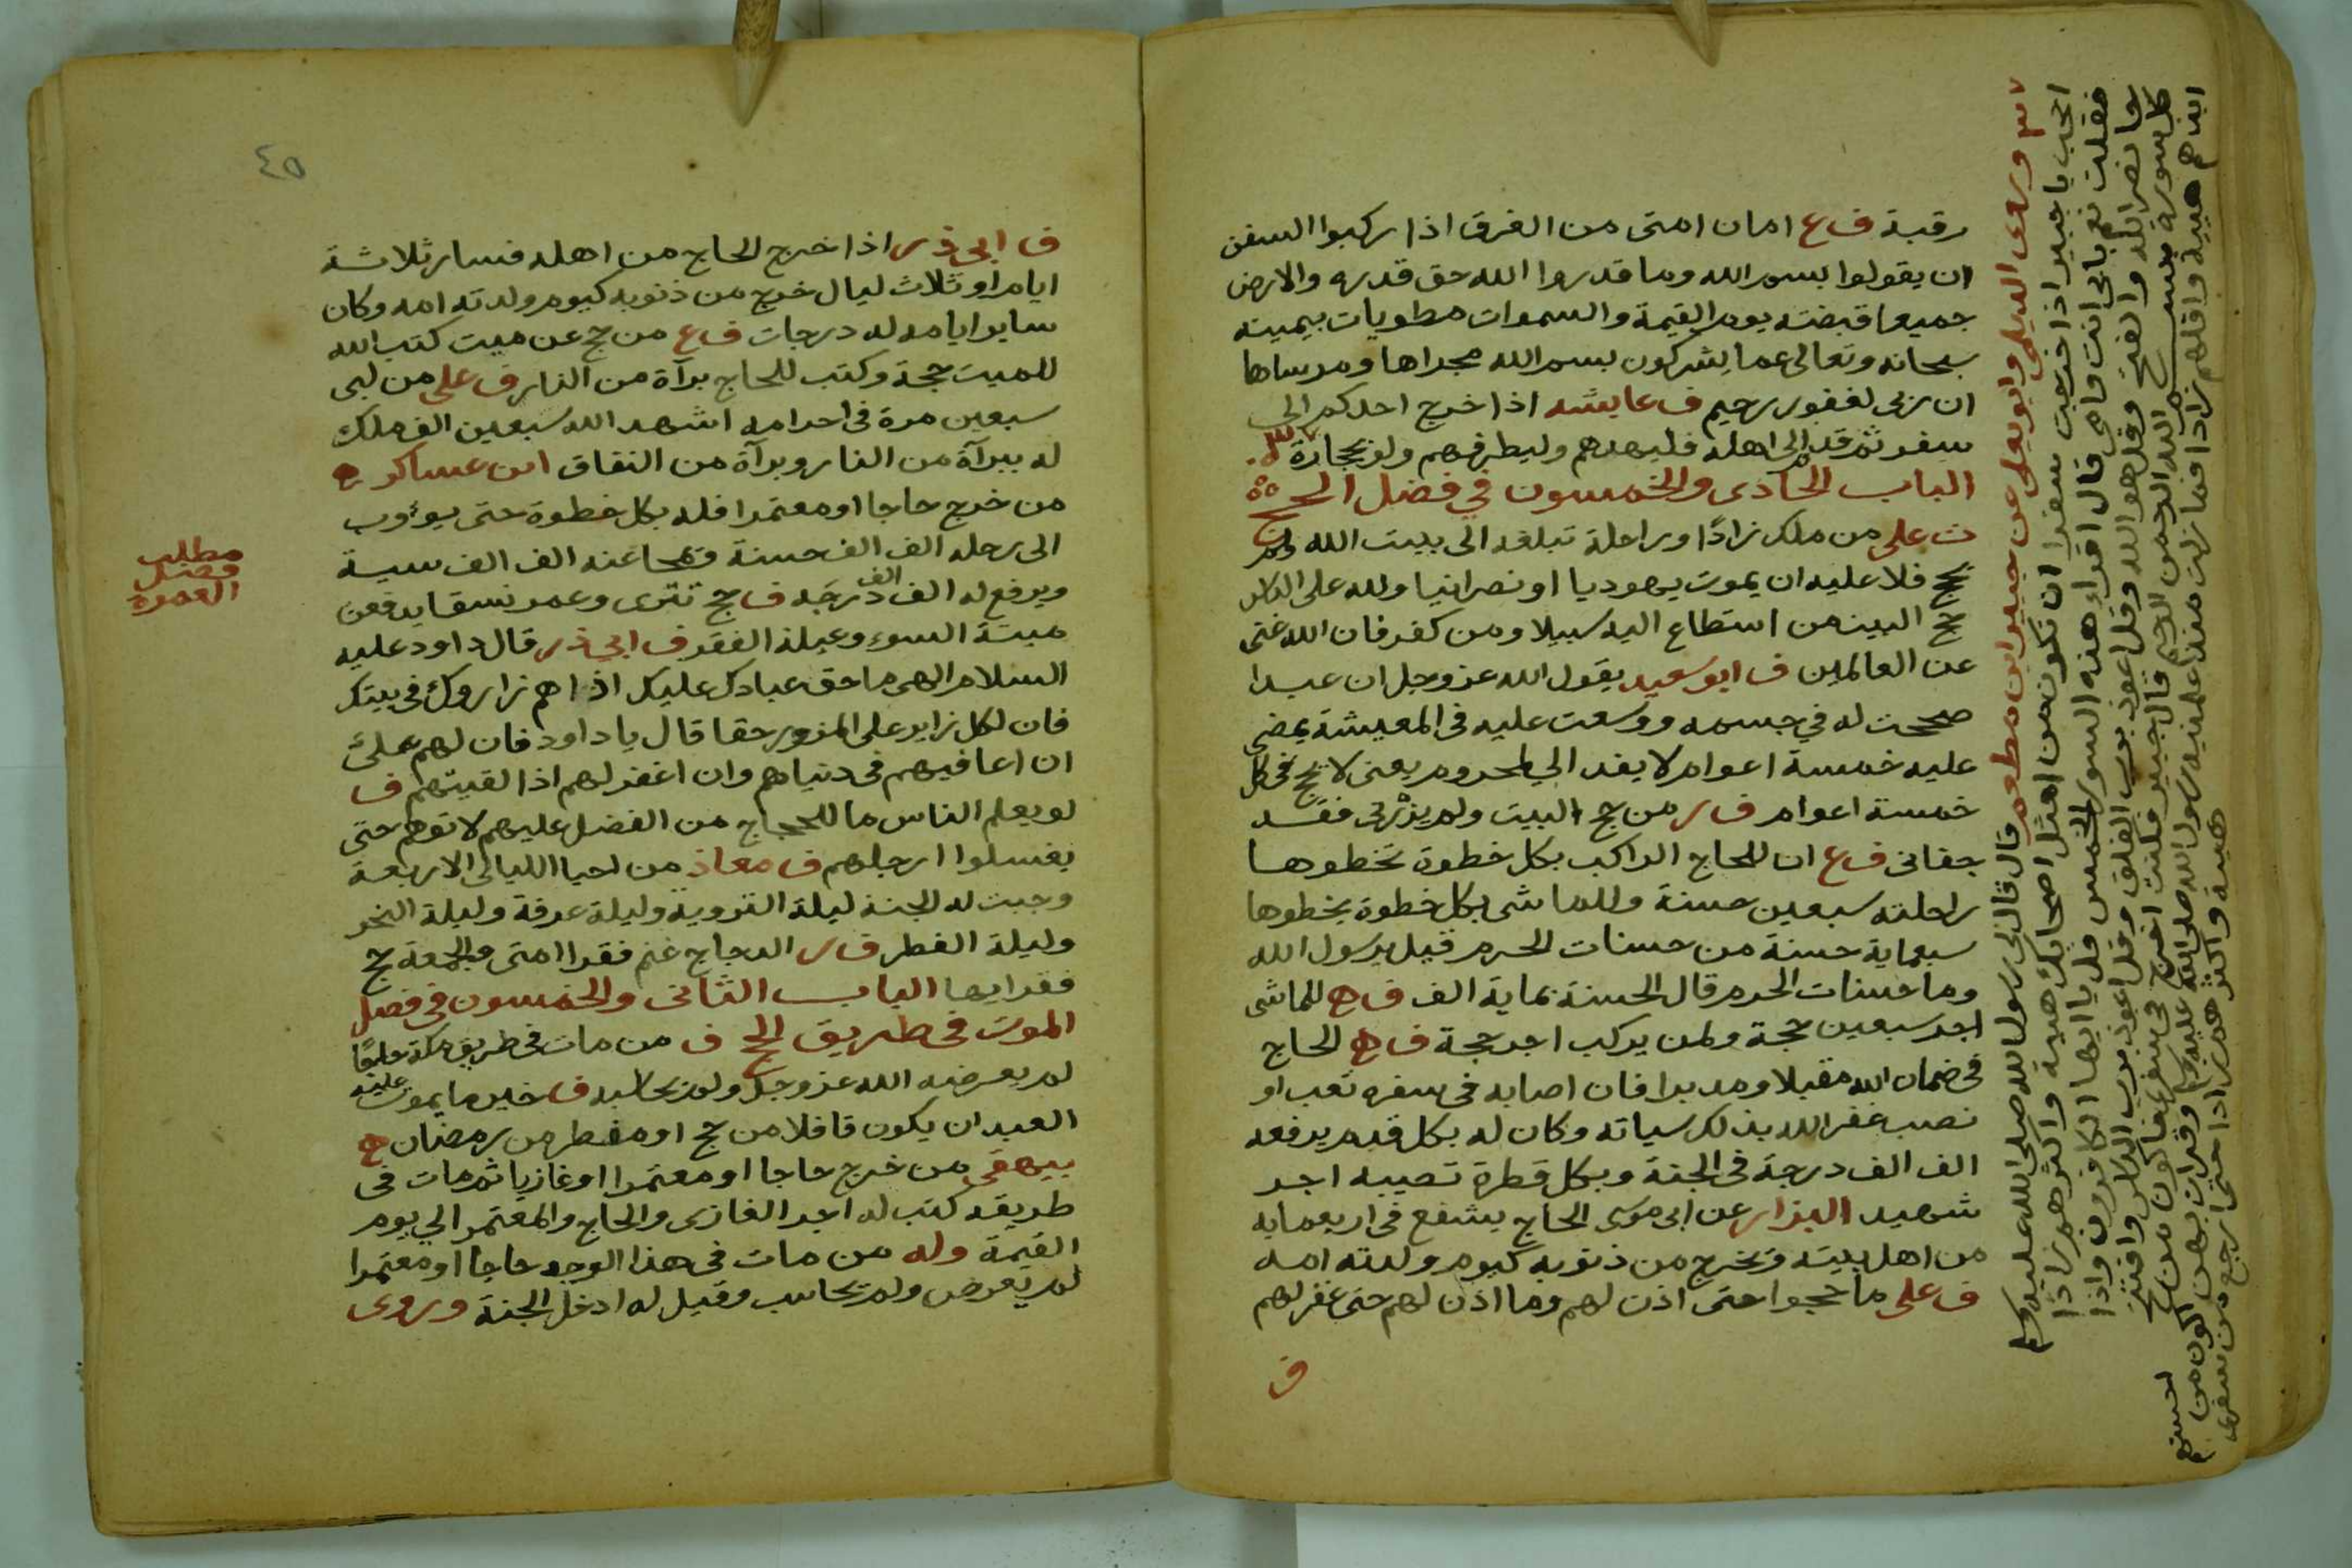 رقبة ف ع امان امتى من الغرق اذا ركبوا السفن
ان يقولوا بسم الله وما قدروا الله حق قدره والارض
جميعا قبضته يوم القيمة والسموات مطويات بيمينه
سبحانه وتعالى عما يشركون بسم الله مجراها ومرساها
ان ربى لغفور رحيم ف عايشه اذا خرج احدكم الى
سفر ثم قدم الى اهله فليهدهم وليطرفهم ولو بحجارة
الباب الحادى والخمسون في فضل الحج
ت على من ملك زادًا وراحلة تبلغه الى بيت الله ولم
يحج فلا عليه ان يموت يهوديا او نصرانيا ولله على الناس
حج البيت من استطاع اليه سبيلا ومن كفر فان الله غنى
عن العالمين ف ابو سعيد يقول الله عز وجل ان عبدا
صححت له في جسمه ووسعت عليه فى المعيشة يمضى
عليه خمسة اعوام لا يفد الي لمحروم يعنى لا يحج فى كل
خمسة اعوام ف ر من حج البيت ولم يزرنى فقد
جفانى ف ع ان للحاج الراكب بكل خطوة تخطوها
راحلته سبعين حسنة وللماشى بكل خطوة يخطوها
سبعماية حسنة من حسنات الحرم قيل يرسول الله
وما حسنات الحرم قال الحسنة بماية الف ف ه للماشى
اجر سبعين حجة ولمن يركب اجر حجة ف ه الحاج
فى ضمان الله مقبلا ومدبرا فان اصابه فى سفره تعب او
نصب غفر الله بذلك سياته وكان له بكل قدم يرفعه
الف الف درجة فى الجنة وبكل قطرة تصيبه اجر
شهيد البزار عن ابى موسى الحاج يشفع فى اربعمايه
من اهل بيته ويخرج من ذنوبه كيوم ولدته امه
ف على ما حجوا حتى اذن لهم وما اذن لهم حتى غفر لهم
ف
وروى الديلمى وابو يعلى عن جبير ابن مطعم قال قال لى رسول الله صلى الله عليه وسلم
اتحب يا جبير اذا خرجت سفرا ان تكون من امثل اصحابك هيية واكثرهم زادا
فقلت نعم بابى انت وامى قال اقراء هذه السور الخمس قل يا ايها الكافرون واذا
جا نصر الله والفتح وقل هو الله وقل اعوذ برب الفلق وقل اعوذ برب الناس وافتتح
كل سورة ببسم الله الرحمن الرحيم قال جبير فكنت اخرج فى سفر فاكون من
ابذهم هيية واقلهم زادا فما زلت منذ علمنيه رسول الله صلى الله عليه وسلم وقرات بهن اكون من احسنهم
هيية واكثرهم زادا حتى ارجع من سفرى
٤٥
ف ابى ذر اذا خرج الحاج من اهله فسار ثلاثة
ايام او ثلاث ليال خرج من ذنوبه كيوم ولدته امه وكان
ساير ايامه له درجات ف ع من حج عن ميت كتب الله
للميت حجة وكتب للحاج برآة من النار ف على من لبى
سبعين مرة فى احرامه اشهد الله سبعين الف ملك
له ببرآة من النار وبرآة من النفاق ابن عساكر ه
من خرج حاجا او معتمرا فله بكل خطوة حتى يوءوب
الى رحله الف الف حسنة ويمحا عنه الف الف سيية
ويرفع له الف الف درجه ف حج تترى وعمر نسقا يدفعن
ميتة السوء وعيلة الفقر ف ابى ذر قال داود عليه
السلام الهى ما حق عبادك عليك اذا هم زاروك فى بيتك
فان لكل زاير على المزور حقا قال يا داود فان لهم على
ان اعافيهم فى دنياهم وان اغفر لهم اذا لقيتهم ف
لو يعلم الناس ما للحجاج من الفضل عليهم لاتوهم حتى
يغسلوا ارجلهم ف معاذ من احيا الليالى الاربعة
وجبت له الجنة ليلة التروية وليلة عرفة وليلة النحر
وليلة الفطر ف ر الدجاج غنم فقرا امتى والجمعة حج
فقرايها الباب الثانى والخمسون فى فضل
الموت فى طريق الحج ف من مات فى طريق مكة
لم يعرضه الله عز وجل ولم يحاسبه ف خير ما يموت عليه
العبد ان يكون قافلا من حج او مفطر من رمضان ه
بيهقى من خرج حاجا او معتمرا او غازيا ثم مات فى
طريقه كتب له اجر الغازى والحاج والمعتمر الي يوم
القيمة وله من مات فى هذا الوجه حاجا او معتمرا
لم يعرض ولم يحاسب وقيل له ادخل الجنة وروى
مطلب
فضل
العمرة